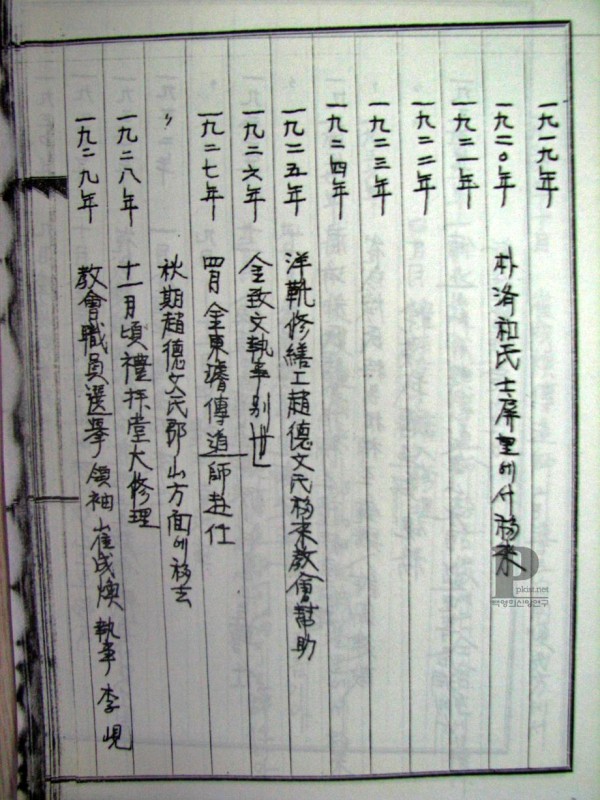 一九一九年
一九二〇年 朴済祖氏士屏里에서 移來
一九二一年
一九二二年
一九二三年
一九二四年
一九二五年 洋靴修繕工趙德文氏移來敎會幇助
一九二六年 金致文執事別世
一九二七年 四月 金東瓚傳道師赴任
〃 秋期趙德文氏郡山方面에移去
一九二八年 十一月頃禮拜堂大修理
一九二九年 敎會職員選擧 領袖 崔成煥 執事 李峴
pkist.net
백영희신앙연구